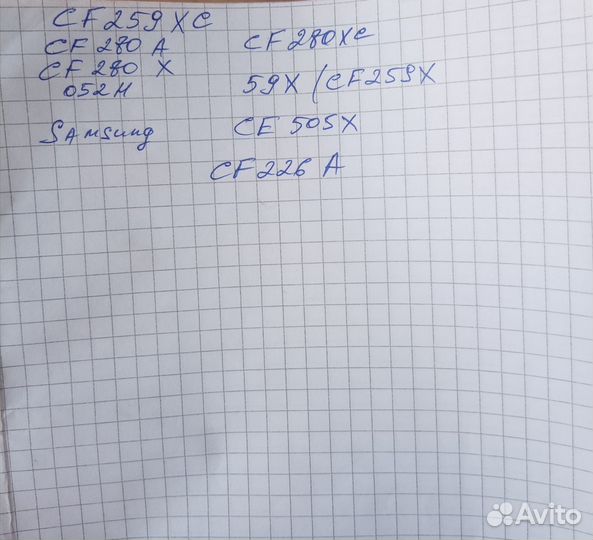 CF259XC
CF280A
CF280XC
CF280X
59X/CF259X
052H
Samsung
CE505X
CF226A
Avito